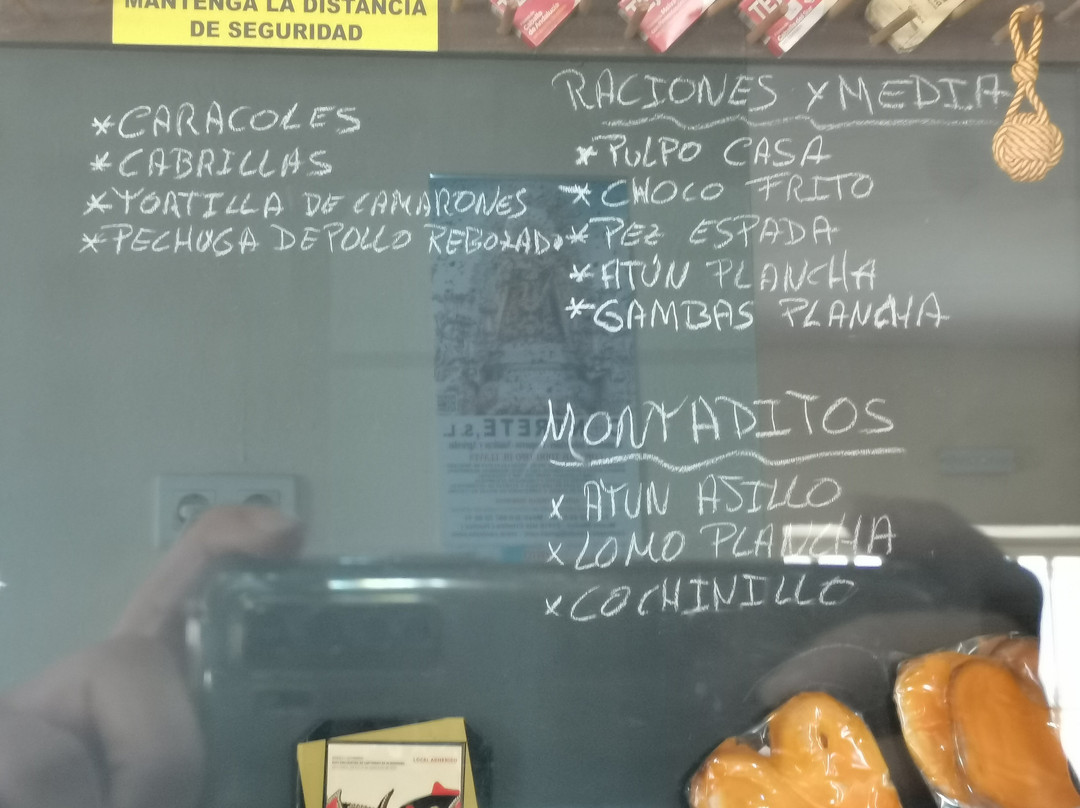 MANTENGA LA DISTANCIA
DE SEGURIDAD
*CARACOLES
*CABRILLAS
*TORTILLA DE CAMARONES
*PECHUGA DE POLLO REBOZADO
RACIONES Y MEDIA
*PULPO CASA
*CHOCO FRITO
*PEZ ESPADA
*ATÚN PLANCHA
*GAMBAS PLANCHA
MONTADITOS
x ATUN AJILLO
x LOMO PLANCHA
x COCHINILLO